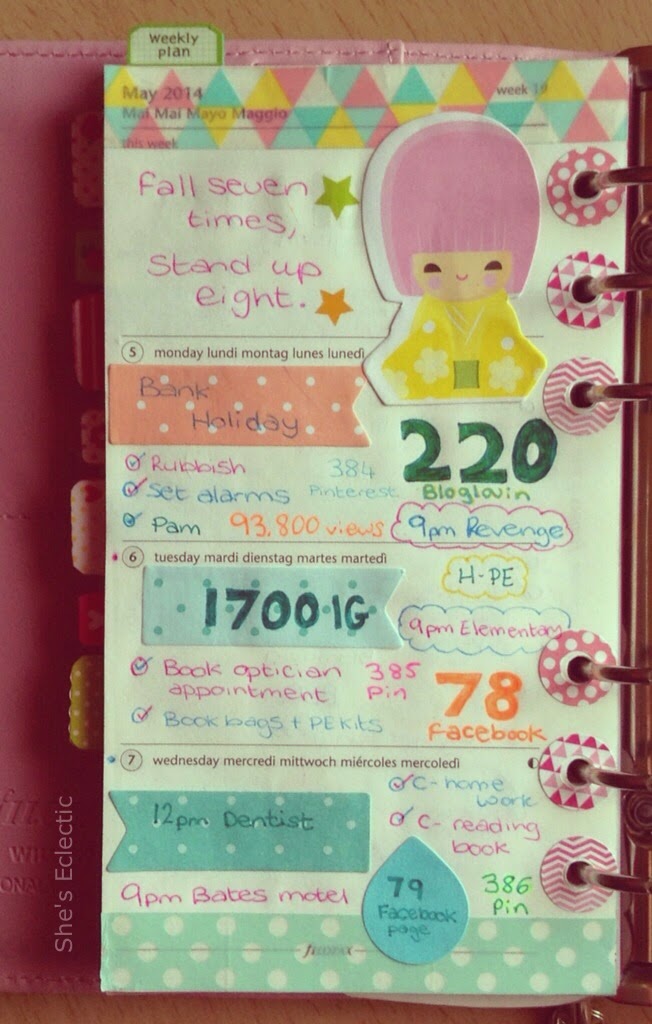 weekly
plan
May 2014
week 19
Mai Mai Mayo Maggio
this week
Fall seven
times,
Stand up
eight.
5 monday lundi montag lunes lunedì
Bank
Holiday
220
Bloglovin
Rubbish
384
Pinterest
Set alarms
Pam
93,800 views
9pm Revenge
6 tuesday mardi dienstag martes martedì
H-PE
1700 IG
9pm Elementary
Book optician
appointment
385
Pin
78
Facebook
Book bags + PE kits
7 wednesday mercredi mittwoch miércoles mercoledì
C-home
work
12pm Dentist
C- reading
book
9pm Bates motel
79
Facebook
page
386
Pin
filofax
She's Eclectic